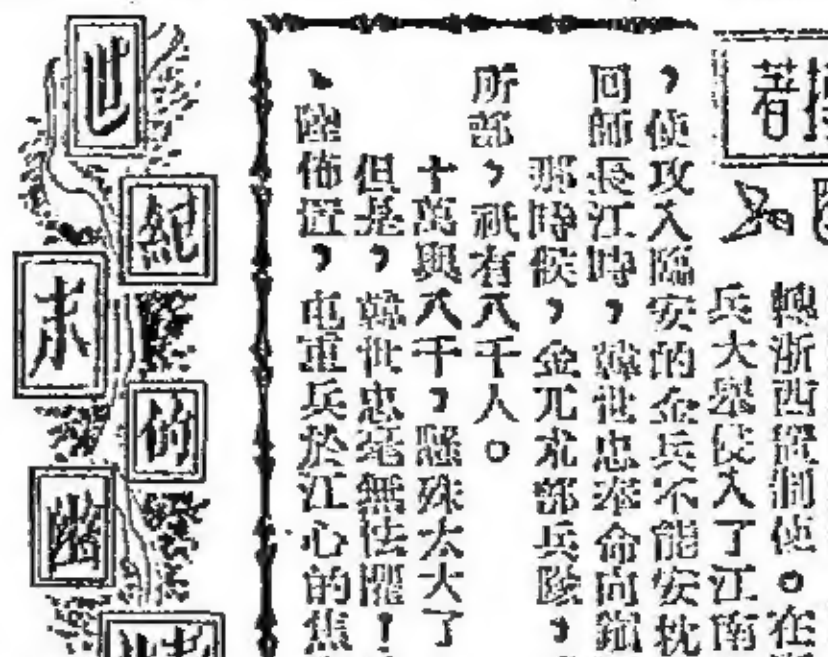 著
轉浙西置制使。在
兵大舉侵入了江南
,使攻入臨安的金兵不能安枕
回師長江時,韓世忠奉命向鎮
那時候,金兀朮部兵隊,
所部,祇有八千人。
十萬與八千,懸殊太大了
但是,韓世忠毫無怯懼!
、陸佈置,屯重兵於江心的焦
世紀末的幽